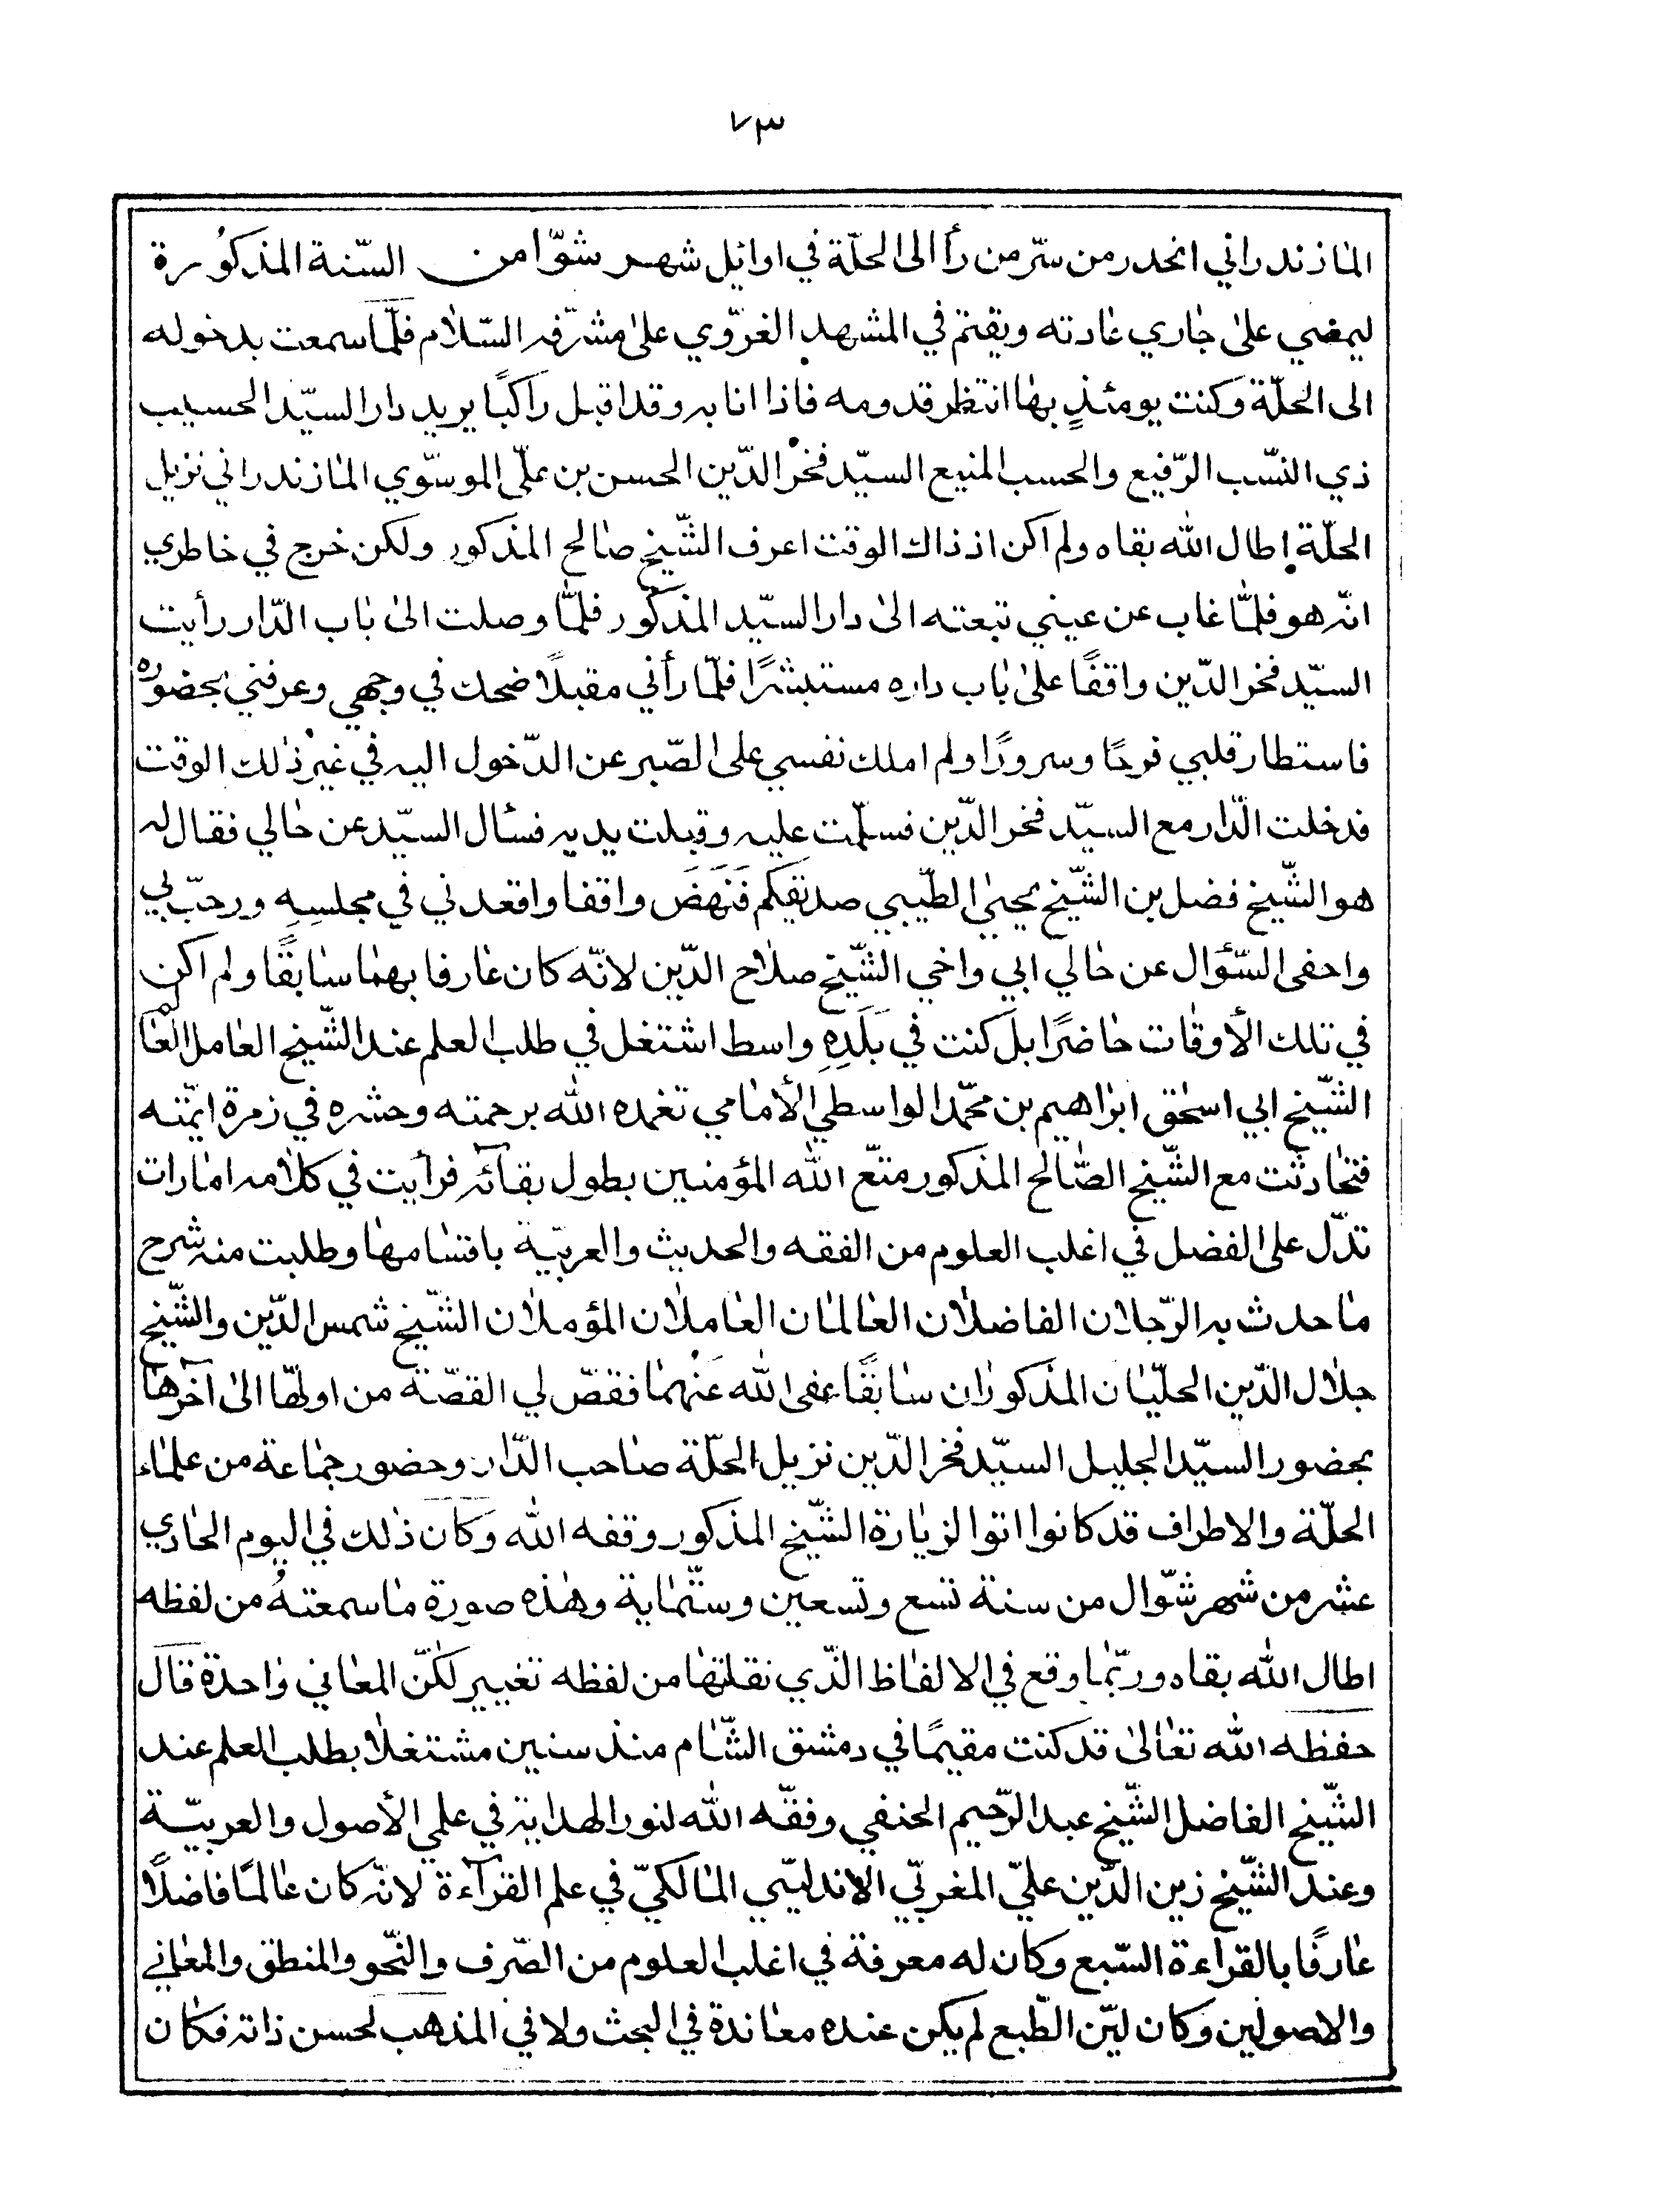 ٧٣
المازندراني انحدر من سرّ من رأ الى الحلّة في اوائل شهر شوّا من السّنة المذكورة
ليمضي على جاري عادته ويقيم في المشهد الغرّوي على مشرّفه السّلام فلمّا سمعت بدخوله
الى الحلّة وكنت يومئذٍ بها انتظر قدومه فاذا انا به وقد اقبل راكبًا يريد دار السيّد الحسيب
ذي النسّب الرّفيع والحسب المنيع السيّد فخر الدّين الحسن بن علّي الموسّوي المازندراني نزيل
الحلّة اطال الله بقاه ولم اكن اذ ذاك الوقت اعرف الشّيخ صالح المذكور ولكن خرج في خاطري
انّه هو فلمّا غاب عن عيني تبعته الى دار السيّد المذكور فلمّا وصلت الى باب الدّار رأيت
السيّد فخر الدّين واقفًا على باب داره مستبشرًا فلمّا رأني مقبلًا ضحك في وجهي وعرفني بحضوره
فاستطار قلبي فرحًا وسرورًا ولم املك نفسي على الصّبر عن الدّخول اليه في غير ذلك الوقت
فدخلت الدّار مع السيّد فخر الدّين فسلّمت عليه وقبلت يديه فسئال السيّد عن حالي فقال له
هو الشّيخ فضل بن الشّيخ يحيى الطّيبي صديقكم فَنَهَضَ واقفا واقعدني في مجلسِهِ ورحبّ لي
واحفى السّؤال عن حالي ابي واخي الشّيخ صلاح الدّين لانّه كان عارفا بهما سابقًا ولم اكن
في تلك الأوقات حاضرًا بل كنت في بَلَدِهِ واسط اشتغل في طلب العلم عند الشّيخ العامل العالم
الشّيخ ابي اسحٰق ابراهيم بن محمّد الواسطي الأمامي تغمده الله برحمته وحشره في زمرة ائمّته
فتحادثت مع الشّيخ الصّالح المذكور متّع الله المؤمنين بطول بقآئه فرأيت في كلامه امارات
تدّل على الفضل في اغلب العلوم من الفقه والحديث والعربيّة باقسامها وطلبت منه شرح
ما حدث به الرّجلان الفاضلان العالمان العاملان المؤملان الشّيخ شمس الدّين والشّيخ
جلال الدّين الحلّيان المذكوران سابقًا عفى الله عَنْهما فقصّ لي القصّة من اولها الى آخرها
بحضور السيّد الجليل السيّد فخر الدّين نزيل الحلّة صاحب الدّار وحضور جماعة من علماء
الحلّة والاطراف قد كانوا اتوا لزيارة الشّيخ المذكور وقفه الله وكان ذلك في اليوم الحادي
عشر من شهر شوّال من سنة تسع وتسعين وستّماية وهذه صورة ما سمعتهُ من لفظه
اطال الله بقاه وربّما وقع في الالفاظ الذّي نقلتها من لفظه تغيير لكنّ المعاني واحدة قال
حفظه الله تعالى قد كنت مقيمًا في دمشق الشّام منذ سنين مشتغلا بطلب العلم عند
الشّيخ الفاضل الشّيخ عبد الرّحيم الحنفي وفقّه الله لنور الهداية في علمي الأصول والعربيّة
وعند الشّيخ زين الدّين عليّ المغربّي الاندلسّي المالكيّ في علم القرآءة لانّه كان عالمًا فاضلًا
عارفًا بالقرآءة السّبع وكان له معرفة في اغلب العلوم من الصّرف والنّحو والمنطق والمعاني
والاصولين وكان ليّن الطّبع لم يكن عنده معاندة في البحث ولا في المذهب لحسن ذاته فكان